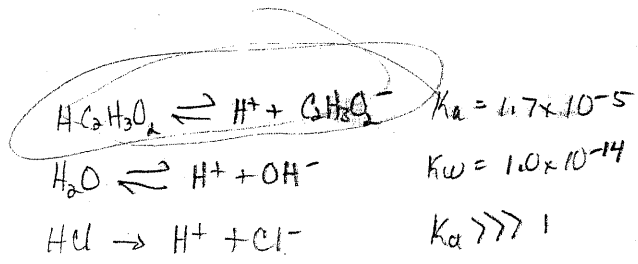 HC₂H₃O₂ ⇌ H⁺ + C₂H₃O₂⁻ Ka = 1.7 x 10⁻⁵
H₂O ⇌ H⁺ + OH⁻ Kw = 1.0 x 10⁻¹⁴
HCl → H⁺ + Cl⁻ Ka >>> 1